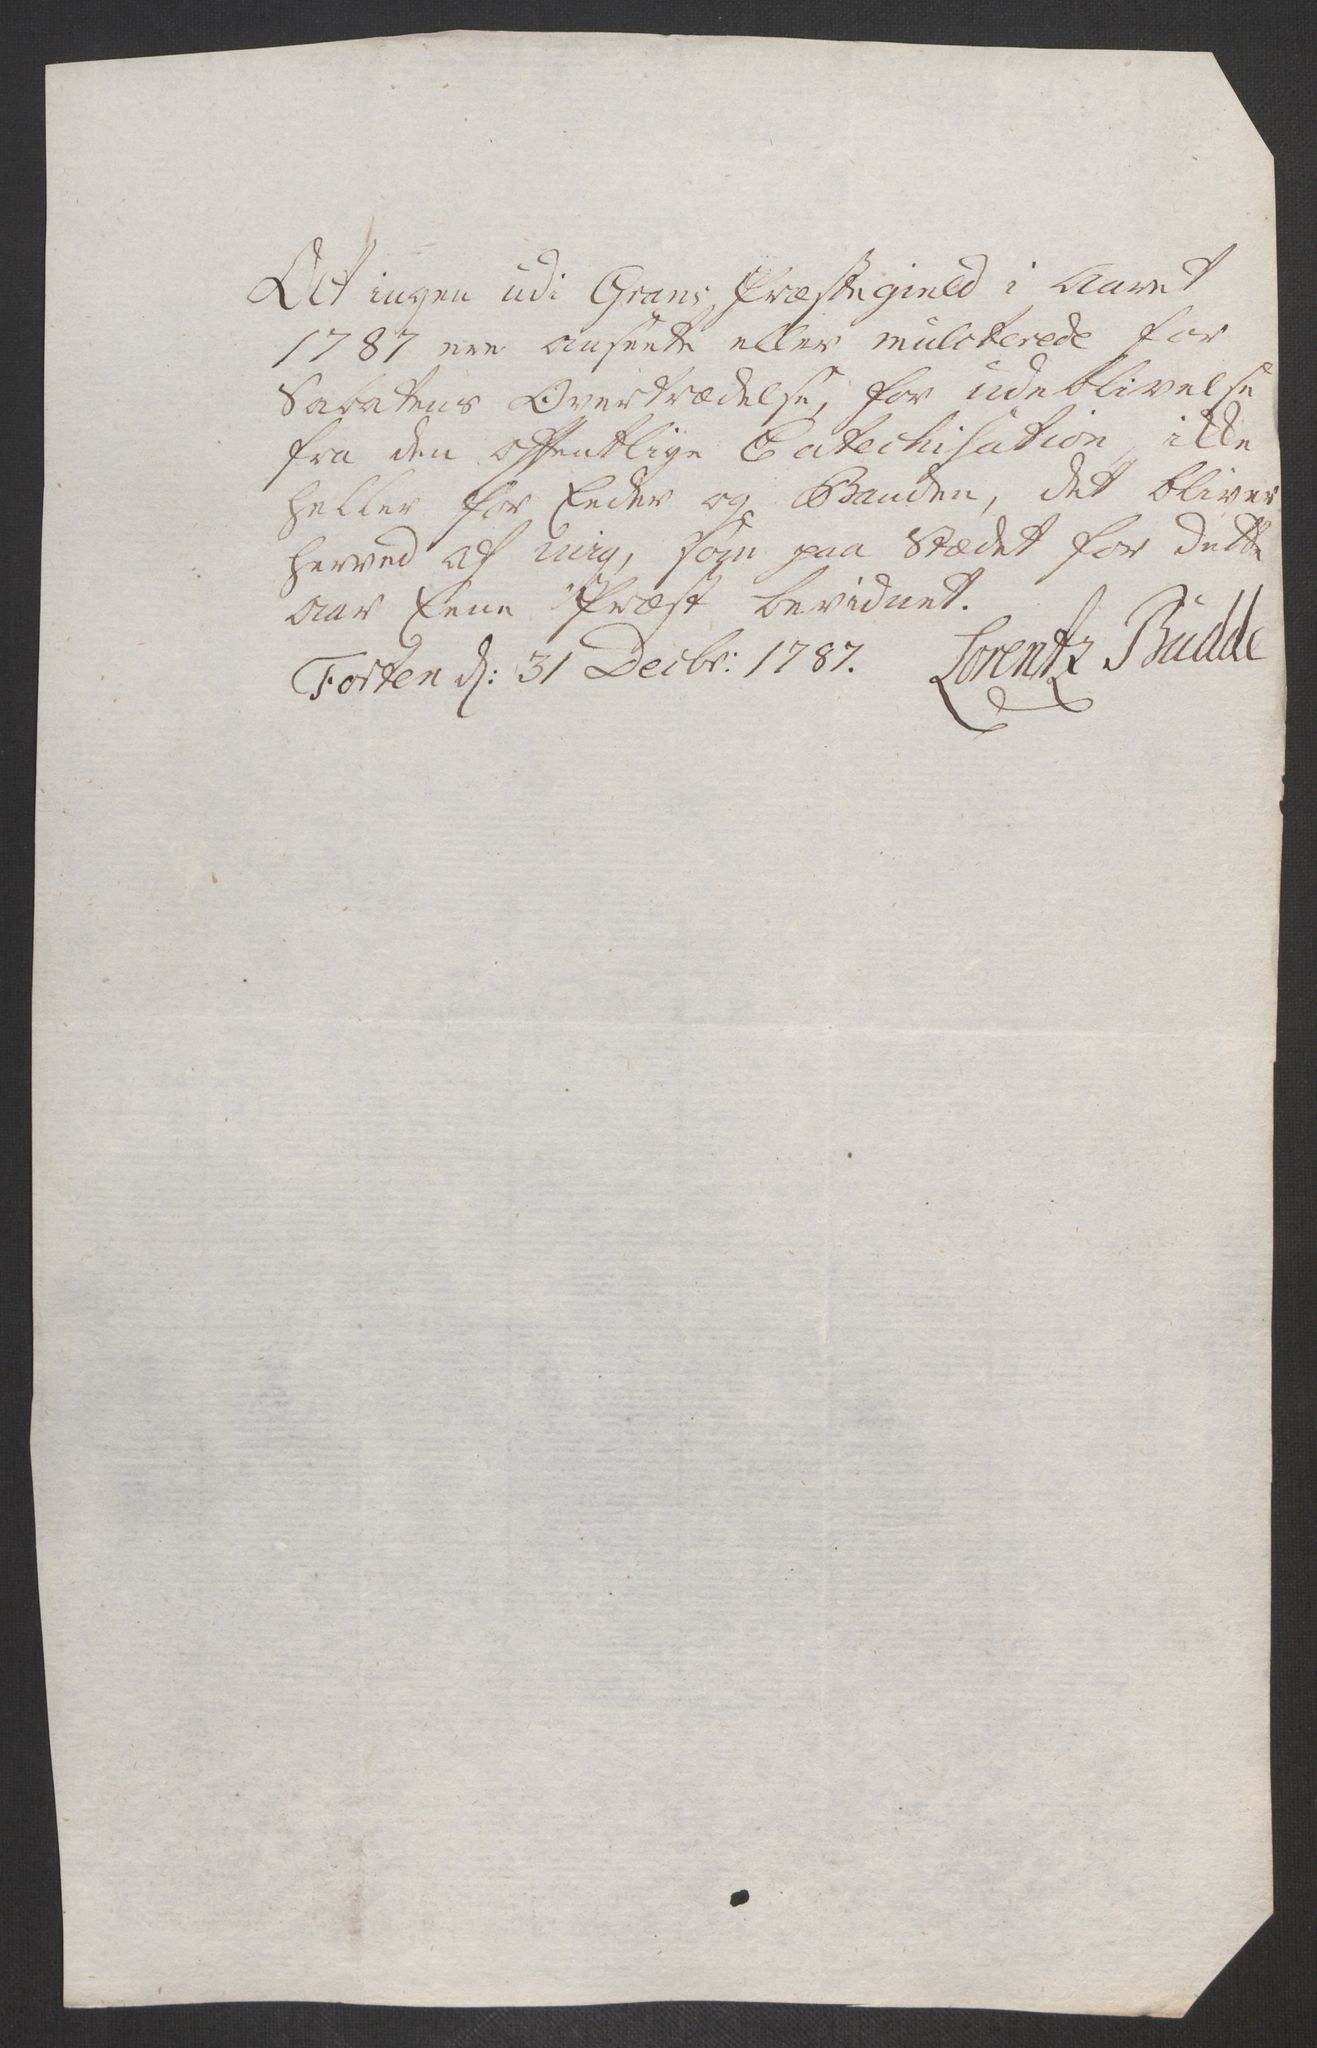 At ingen udi Grans Præstegield i Aaret
1787 ere anseete eller mulcterede for
Sabatens Overtrædelse, for udeblivelse
fra den offentlige Catechisation, ikke
heller for Eeder og Banden, det bliver
herved af mig, som paa Stædet for dette
aar Eene Præst bevidnet.
Forten d: 31 Decbr: 1787. Lorentz Budde